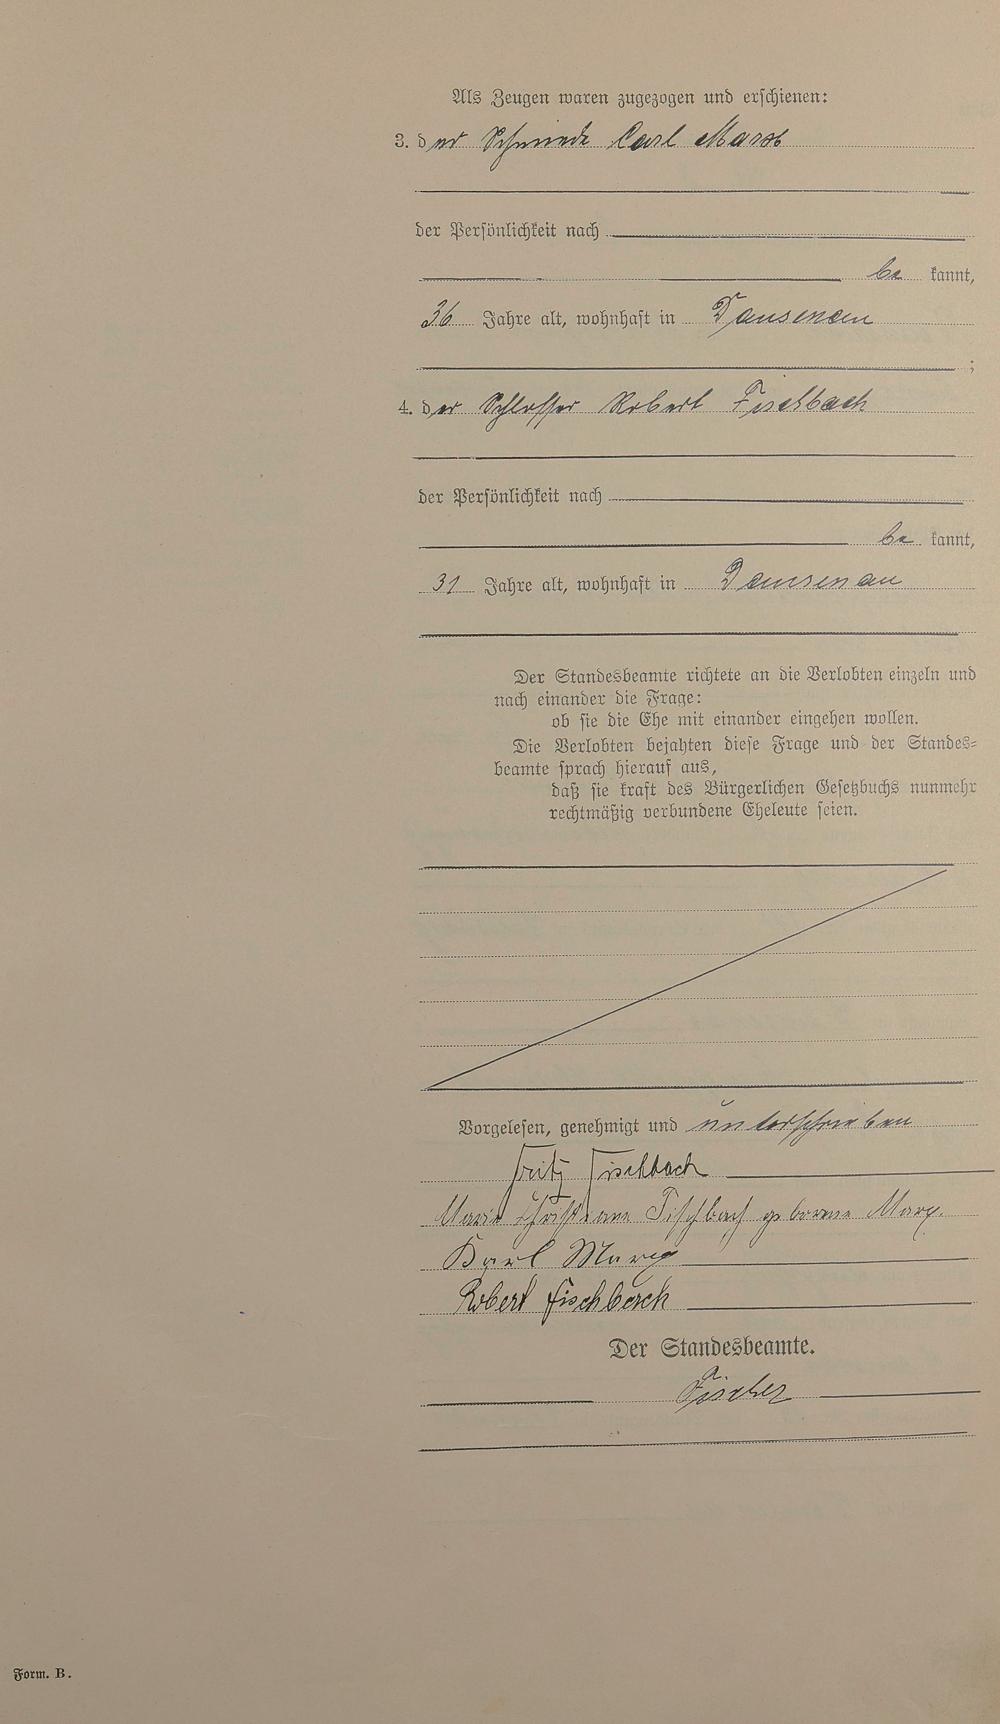 Als Zeugen waren zugezogen und erschienen:
3. der Schmiede Carl Marx
der Persönlichkeit nach
be kannt,
36 Jahre alt, wohnhaft in Dausenau
;
4. der Schlosser Robert Fischbach
der Persönlichkeit nach
be kannt,
31 Jahre alt, wohnhaft in Dausenau
Der Standesbeamte richtete an die Verlobten einzeln und
nach einander die Frage:
ob sie die Ehe mit einander eingehen wollen.
Die Verlobten bejahten diese Frage und der Standes=
beamte sprach hierauf aus,
daß sie kraft des Bürgerlichen Gesetzbuchs nunmehr
rechtmäßig verbundene Eheleute seien.
Vorgelesen, genehmigt und unterschrieben
Fritz Fischbach
Marie Christiane Fischbach geborene Marx.
Karl Marx
Robert Fischbach
Der Standesbeamte.
Fischer
Form. B.